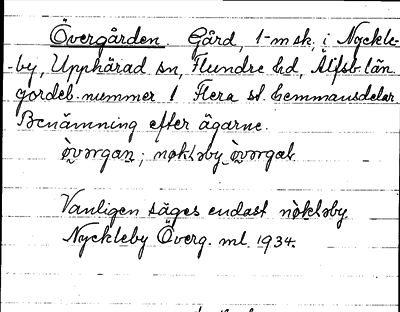 Övergården. Gård, 1 msk, i Nyckle-
-by, Upphärad sn, Flundre hd, Älfsb. län
jordeb. nummer 1 Flera st. hemmansdelar
Benämning efter ägarne.
Vanligen säges endast
Nyckleby Överg. ml. 1934.